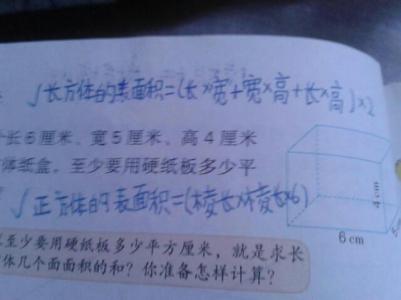 长方体的表面积=(长×宽+宽×高+长×高)×2
长6厘米、宽5厘米、高4厘米
体纸盒。至少要用硬纸板多少平
正方体的表面积=(棱长×棱长×6)
4 cm
6 cm
至少要用硬纸板多少平方厘米，就是求长
体几个面面积的和？你准备怎样计算？